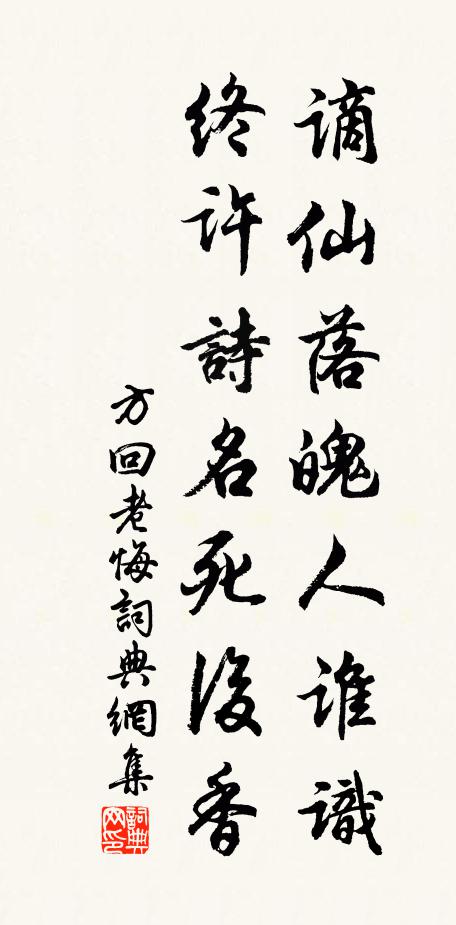 谪仙落魄人谁識
终许詩名死後香
方回老悔詞典網集
詞典网印